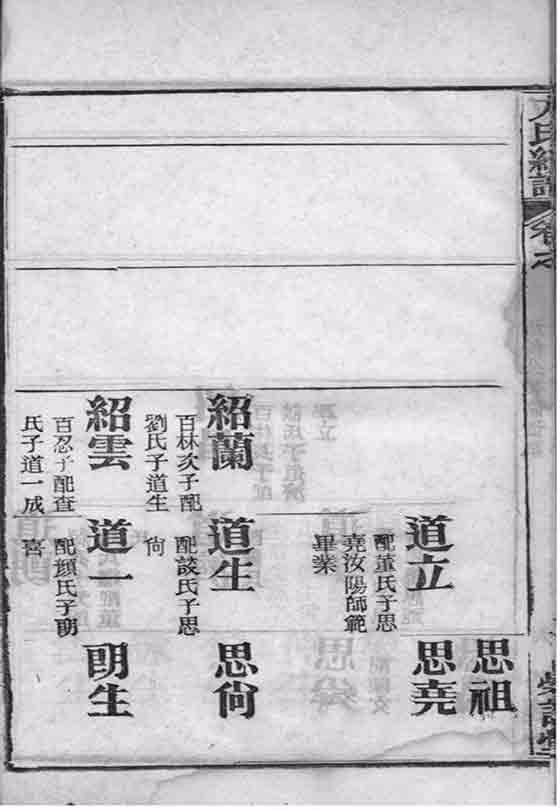 氏續譜
卷之
紹蘭
百林次子配
劉氏子道生
紹雲
百忍子配查
氏子道一成
道立
配董氏子思
堯汝陽師範
畢業
道生
配談氏子思
尙
道一
配顏氏子朗
喜
思祖
思堯
思尙
朗生